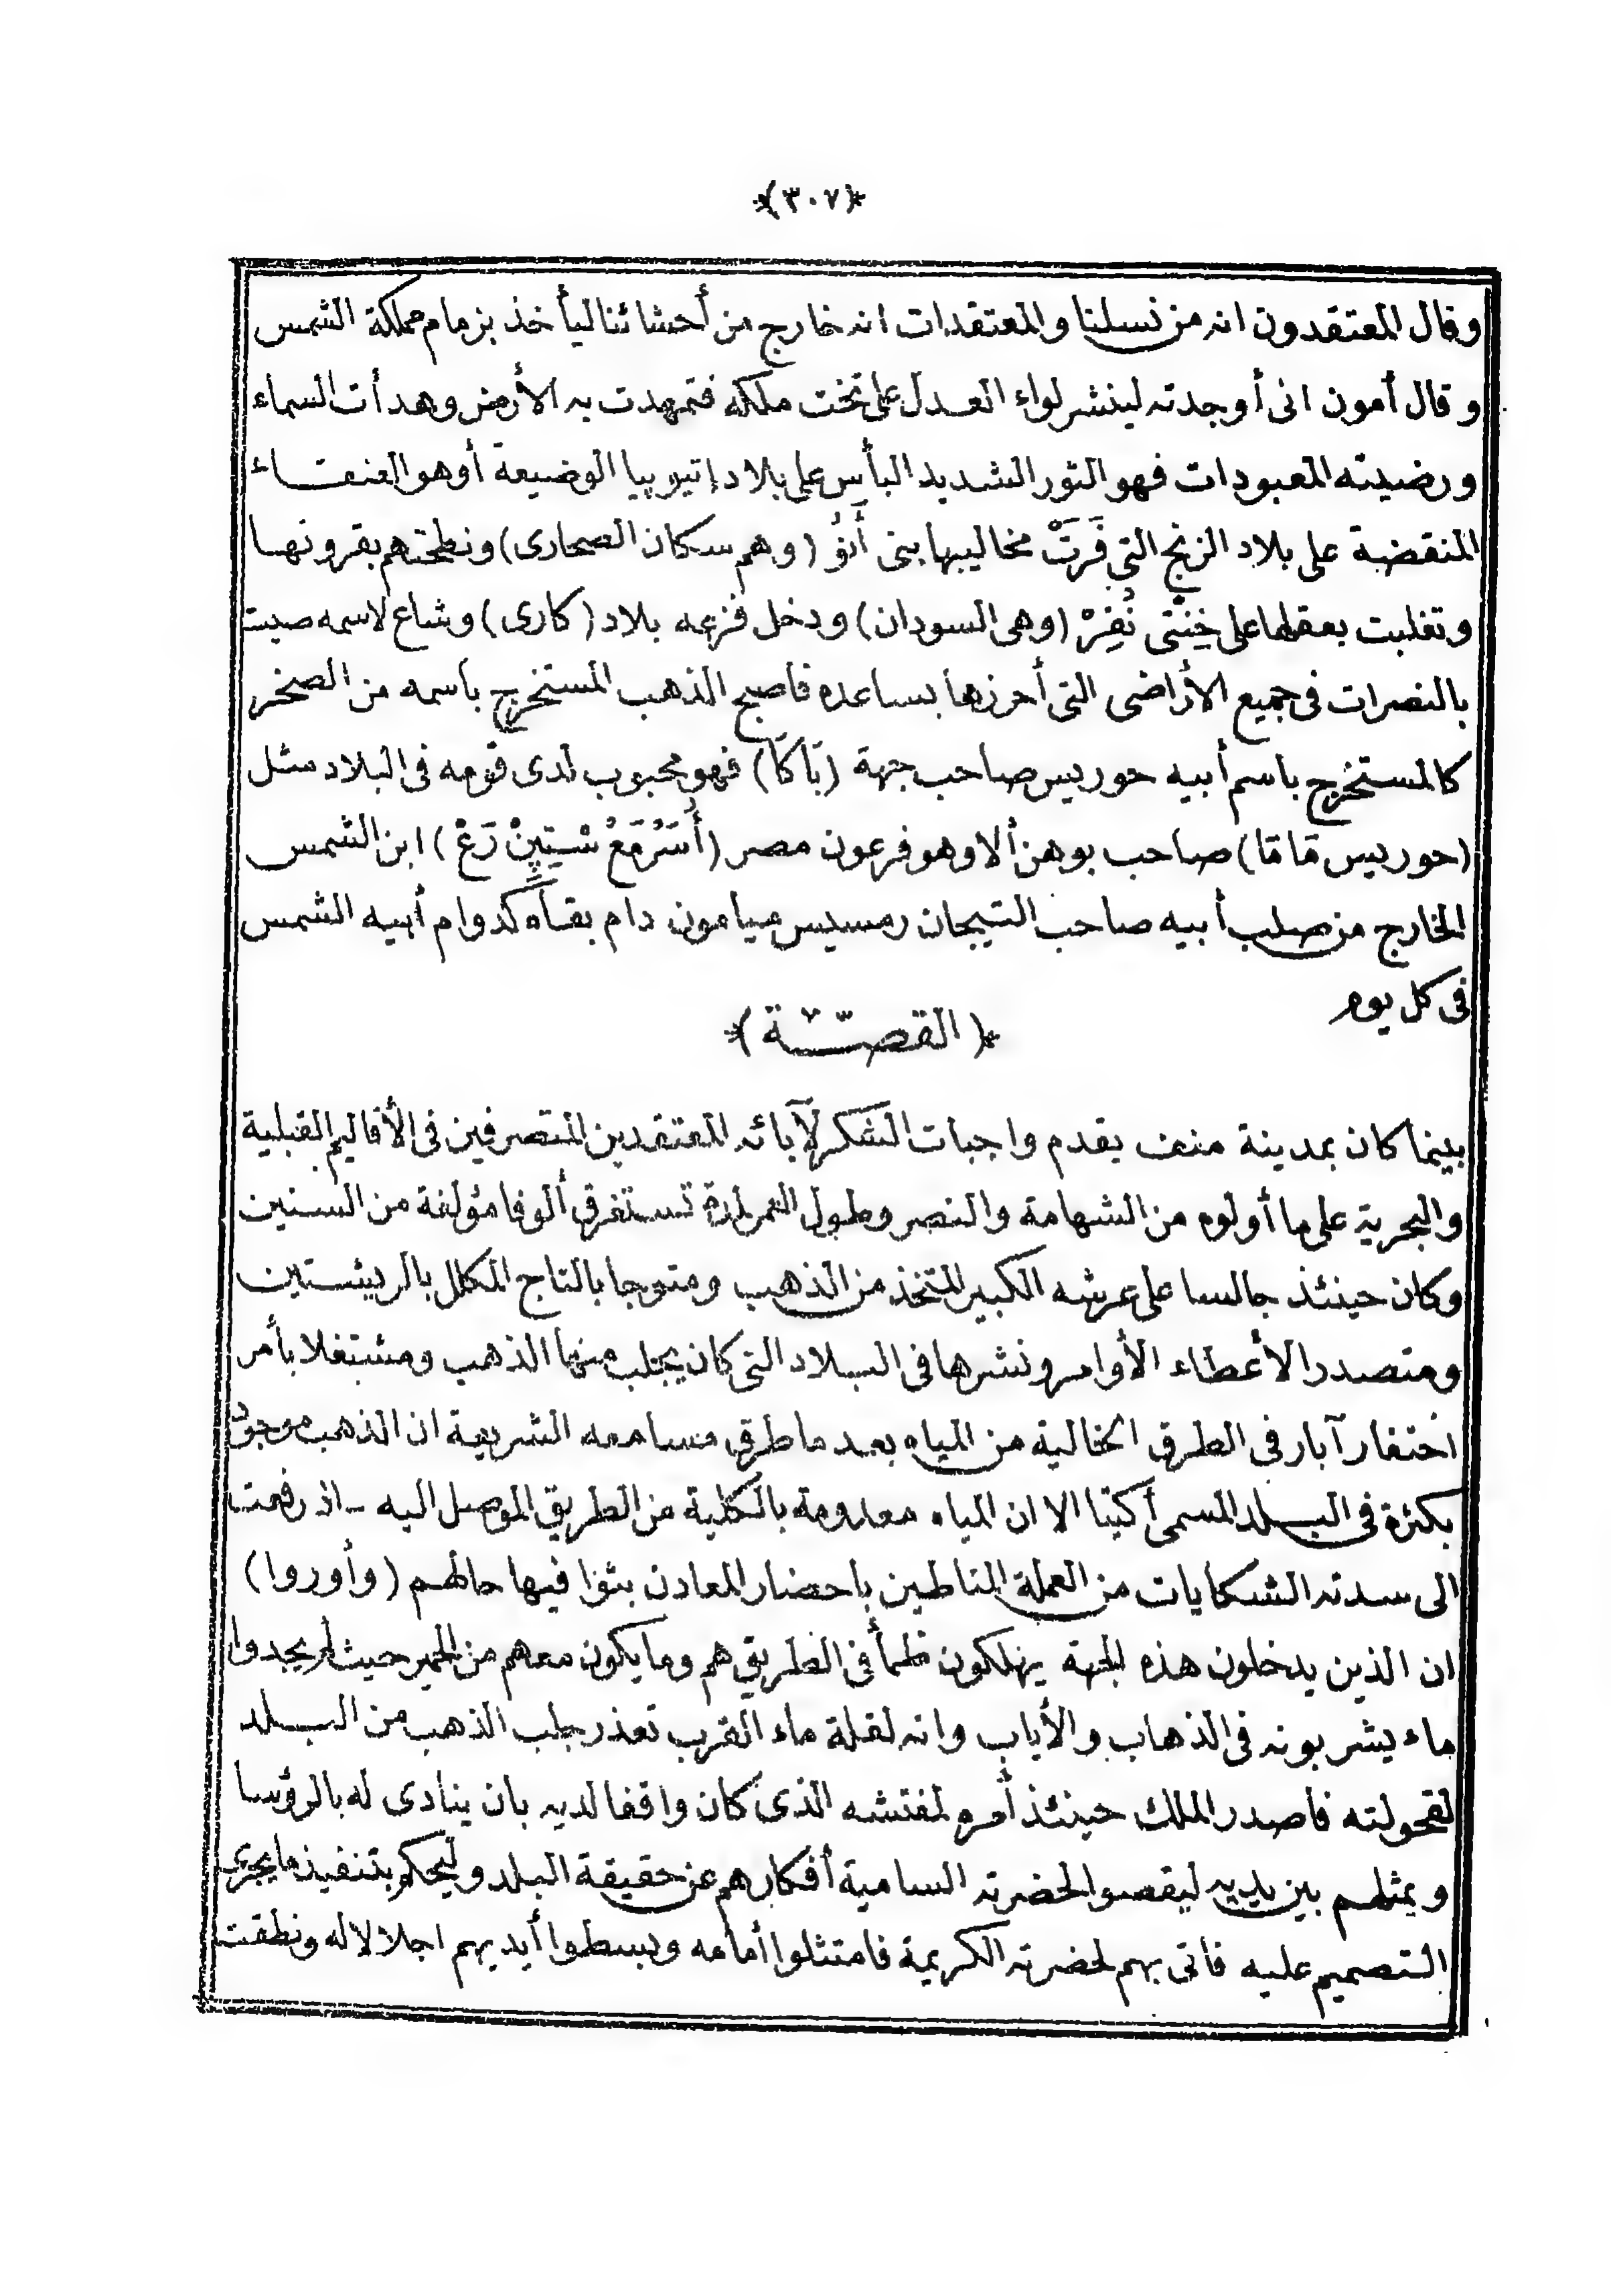 *(٣٠٧)*
وقال المعتقدون انه من نسلنا والمعتقدات انه خارج من أحشائنا ليأخذ بزمام مملكة الشمس
وقال أمون انى أوجدته لينشر لواء العدل على تخت ملكه فتمهدت به الأرض وهدأت السماء
ورضيته المعبودات فهو الثور الشديد البأس على بلاد إتيوبيا الوضيعة أوهو العنقاء
المنقضة على بلاد الزنج التى فَرَتْ مخاليبها بنى أَنُوُ (وهم سكان الصحارى) ونطحتهم بقرونها
وتغلبت بعقلها على خِنْتى نُفِرْ (وهى السودان) ودخل فزعه بلاد (كارى) وشاع لاسمه صيت
بالنصرات فى جميع الأراضى التى أحرزها بساعده فاصبح الذهب المستخرج باسمه من الصخر
كالمستخرج باسم أبيه حوريس صاحب جهة (بَاكَا) فهو محبوب لدى قومه فى البلاد مثل
(حوريس مَامَا) صاحب بوهن ألا وهو فرعون مصر (أُسَرْمَعُ سْتِپِنْ رَعْ) ابن الشمس
الخارج من صلب أبيه صاحب التيجان رمسيس ميامون دام بقاه كدوام أبيه الشمس
فى كل يوم
*(القصّة)*
بينما كان بمدينة منف يقدم واجبات الشكر لآبائه المعتقدين المتصرفين فى الأقاليم القبلية
والبحرية على ما أولوه من الشهامة والنصر وطول العمر لمدة تستغرق ألوفا مؤلفة من السنين
وكان حينئذ جالسا على عرشه الكبير المتخذ من الذهب ومتوجا بالتاج المكلل بالريشتين
ومتصدرا لأعطاء الأوامر ونشرها فى البلاد التى كان يجلب منها الذهب ومشتغلا بأمر
احتفار آبار فى الطرق الخالية من المياه بعد ما طرق مسامعه الشريفة ان الذهب موجود
بكثرة فى البلد المسمى أكيتا الا ان المياه معدومة بالكلية من الطريق الموصل اليه - اذ رفعت
الى سدته الشكايات من العملة المناطين باحضار المعادن بثوا فيها حالهم (وأوروا)
ان الذين يدخلون هذه الجهة يهلكون ظمأ فى الطريق هم وما يكون معهم من الحمير حيث لم يجدوا
ماء يشربونه فى الذهاب والأياب وانه لقلة ماء القرب تعذر جلب الذهب من البلد
لقحولته فاصدر الملك حينئذ أمره لمفتشه الذى كان واقفا لديه بان ينادى له بالرؤسا
ويمثلهم بين يديه ليقصوا لحضرته السامية أفكارهم عن حقيقة البلد وليحكم بتنفيذ ما يجرى
التصميم عليه فاتى بهم لحضرته الكريمة فامتثلوا أمامه وبسطوا أيديهم اجلالا له ونطقت